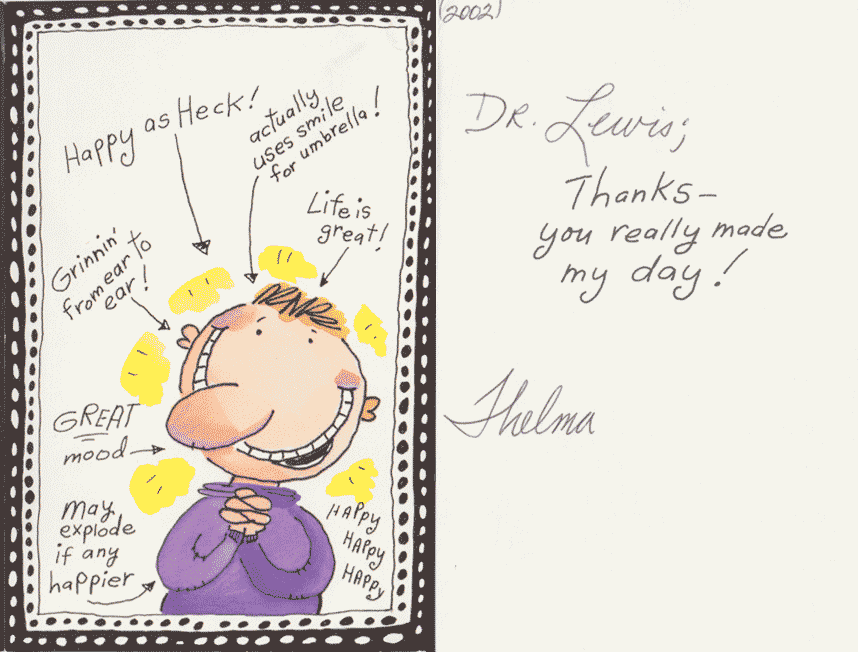 Happy as Heck!
actually
uses smile
for umbrella!
Life is
great!
Grinnin'
from ear to
ear!
GREAT
mood
may
explode
if any
happier
HAPPY
HAPPY
HAPPY
(2002)
DR. Lewis;
Thanks—
you really made
my day!
Thelma